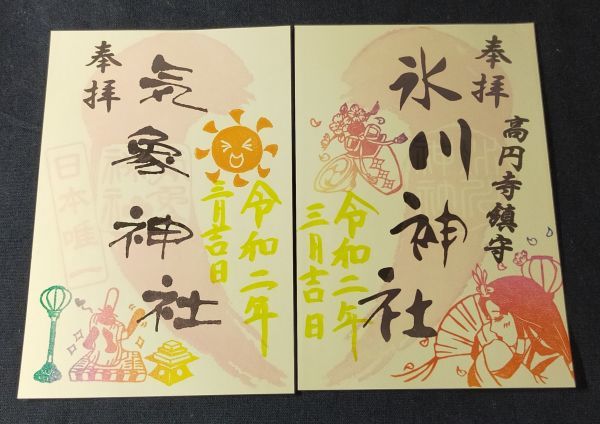 奉拝
気象神社
日本唯一
令和二年
三月吉日
奉拝
高円寺鎮守
氷川神社
令和二年
三月吉日